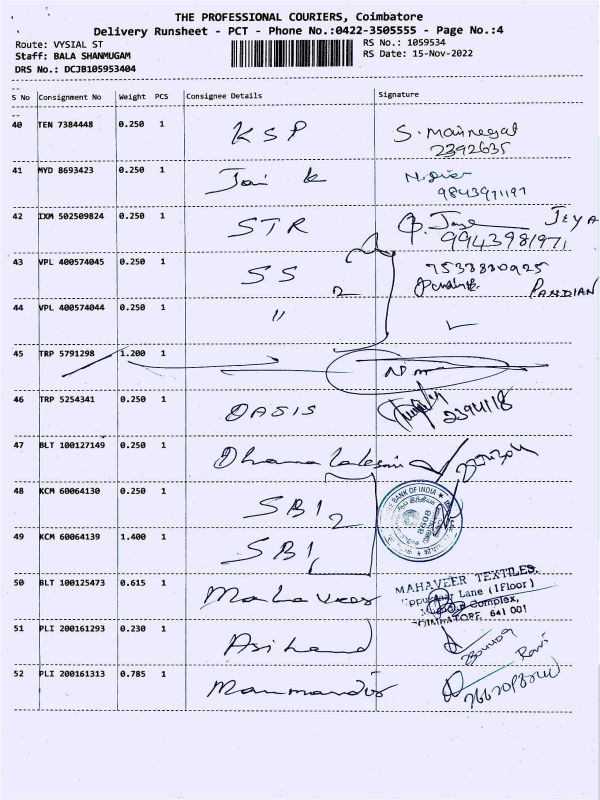 THE PROFESSIONAL COURIERS, Coimbatore
Delivery Runsheet - PCT - Phone No.:0422-3505555 - Page No.:4
Route: VYSIAL ST
RS No.: 1059534
Staff: BALA SHANMUGAM
RS Date: 15-Nov-2022
DRS No.: DCJB105953404
S No Consignment No Weight PCS Consignee Details Signature
40 TEN 7384448 0.250 1 KSP
2392635
41 MYD 8693423 0.250 1 Jai k
42 IXM 502509824 0.250 1 STR JEYA
9943981971
43 VPL 400574045 0.250 1 SS 2 7533880925
PANDIAN
44 VPL 400574044 0.250 1 "
45 TRP 5791298 1.200 1
46 TRP 5254341 0.250 1 OASIS 2394118
47 BLT 100127149 0.250 1
48 KCM 60064130 0.250 1 SBI 2 BANK OF INDIA
49 KCM 60064139 1.400 1 SBI
50 BLT 100125473 0.615 1 Mahaveer MAHAVEER TEXTILES,
Lane (I Floor)
Complex,
COIMBATORE. 641 001
51 PLI 200161293 0.230 1 Arihand
52 PLI 200161313 0.785 1 Ravi